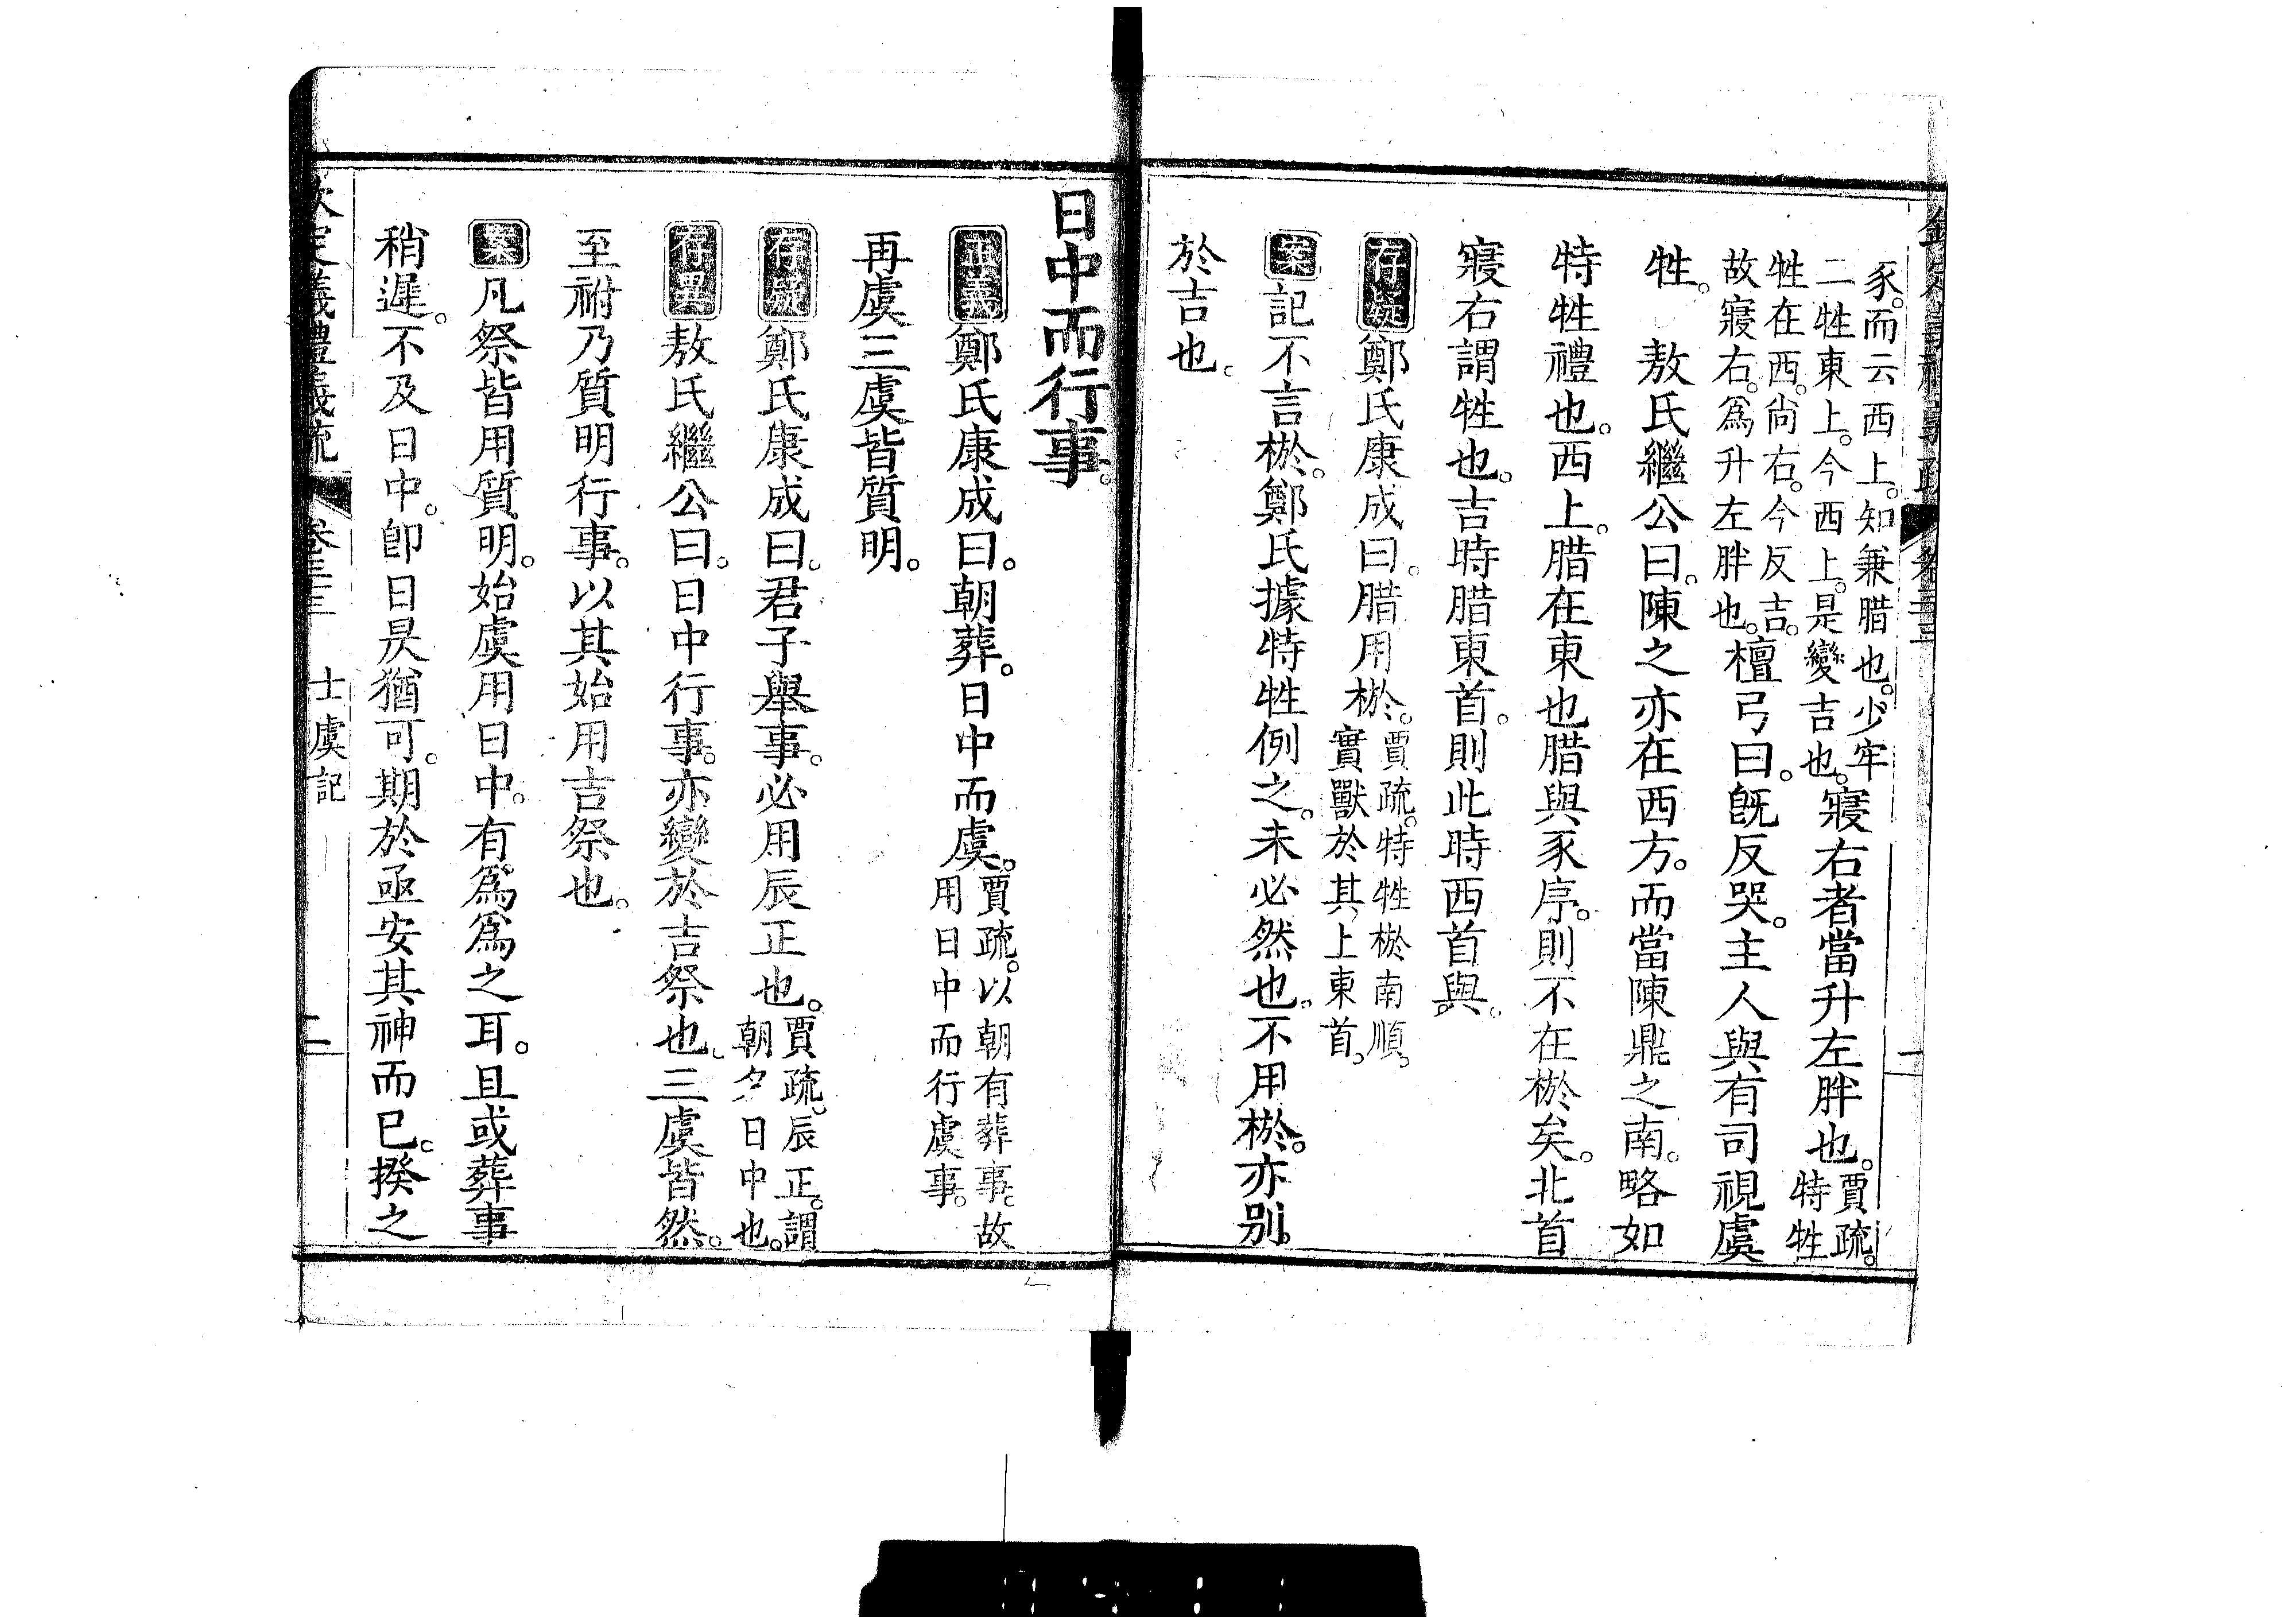 欽定義禮義疏 卷三三 一
豕。而云西上。知兼腊也。少牢
二牲東上。今西上。是變吉也。寢右者當升左胖也。賈疏。
特牲
牲在西。尚右。今反吉。
故寢右。為升左胖也。檀弓曰。旣反哭。主人與有司視虞
牲。 敖氏繼公曰。陳之亦在西方。而當陳鼎之南。略如
特牲禮也。西上。腊在東也腊與豕序。則不在棜矣。北首
寢右謂牲也。吉時腊東首。則此時西首與。
存疑鄭氏康成曰。腊用棜。賈疏。特牲棜南順。
實獸於其上東首。
案記不言棜。鄭氏據特牲例之。未必然也。不用棜。亦別。
於吉也。
日中而行事。
正義鄭氏康成曰。朝葬。日中而虞。賈疏。以朝有葬事。故
用日中而行虞事。
再虞三虞皆質明。
存疑鄭氏康成曰。君子舉事。必用辰正也。賈疏。辰正。謂
朝夕日中也。
存異敖氏繼公曰。日中行事。亦變於吉祭也。三虞皆然。
至祔乃質明行事。以其始用吉祭也。
案凡祭皆用質明。始虞用日中。有為為之耳。且或葬事
稍遲。不及日中。卽日昃猶可。期於亟安其神而已。揆之
欽定義禮義疏 卷三三 士虞記 二